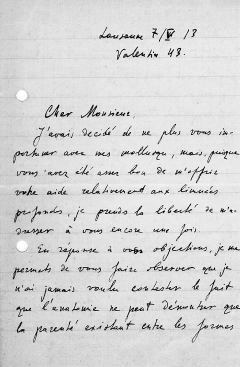 Lausanne 7/V 13
Valentin 43.
Cher Monsieur,
J'avais décidé de ne plus vous im-
portuner avec mes mollusques, mais, puisque
vous avez été assez bon de m'offrir
votre aide relativement aux limnées
profondes, je prends la liberté de m'a-
dresser à vous encore une fois.
En réponse à vos objections, je me
permets de vous faire observer que je
n'ai jamais voulu contester le fait
que l'anatomie ne peut démontrer que
la parenté existant entre les formes